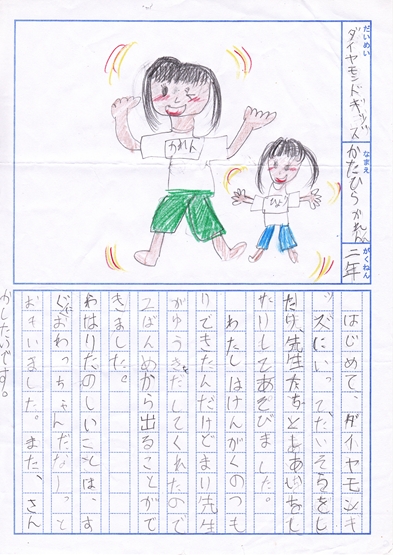 だいめい
ダイヤモンドキッズ
なまえ
かたひらかれん
がくねん
二年
かれん
はじめて、ダイヤモンドキ
ッズにいって、たいそうをし
たり、先生たちとしあいをし
たりしてあそびました。
わたしはけんがくのつも
りできたんだけどまり先生
がゆうきだしてくれたので
2ばんめから出ることがで
きました。
やはりたのしいことは、す
ぐにおわっちゃんだなーっと
おもいました。また、さん
かしたいです。